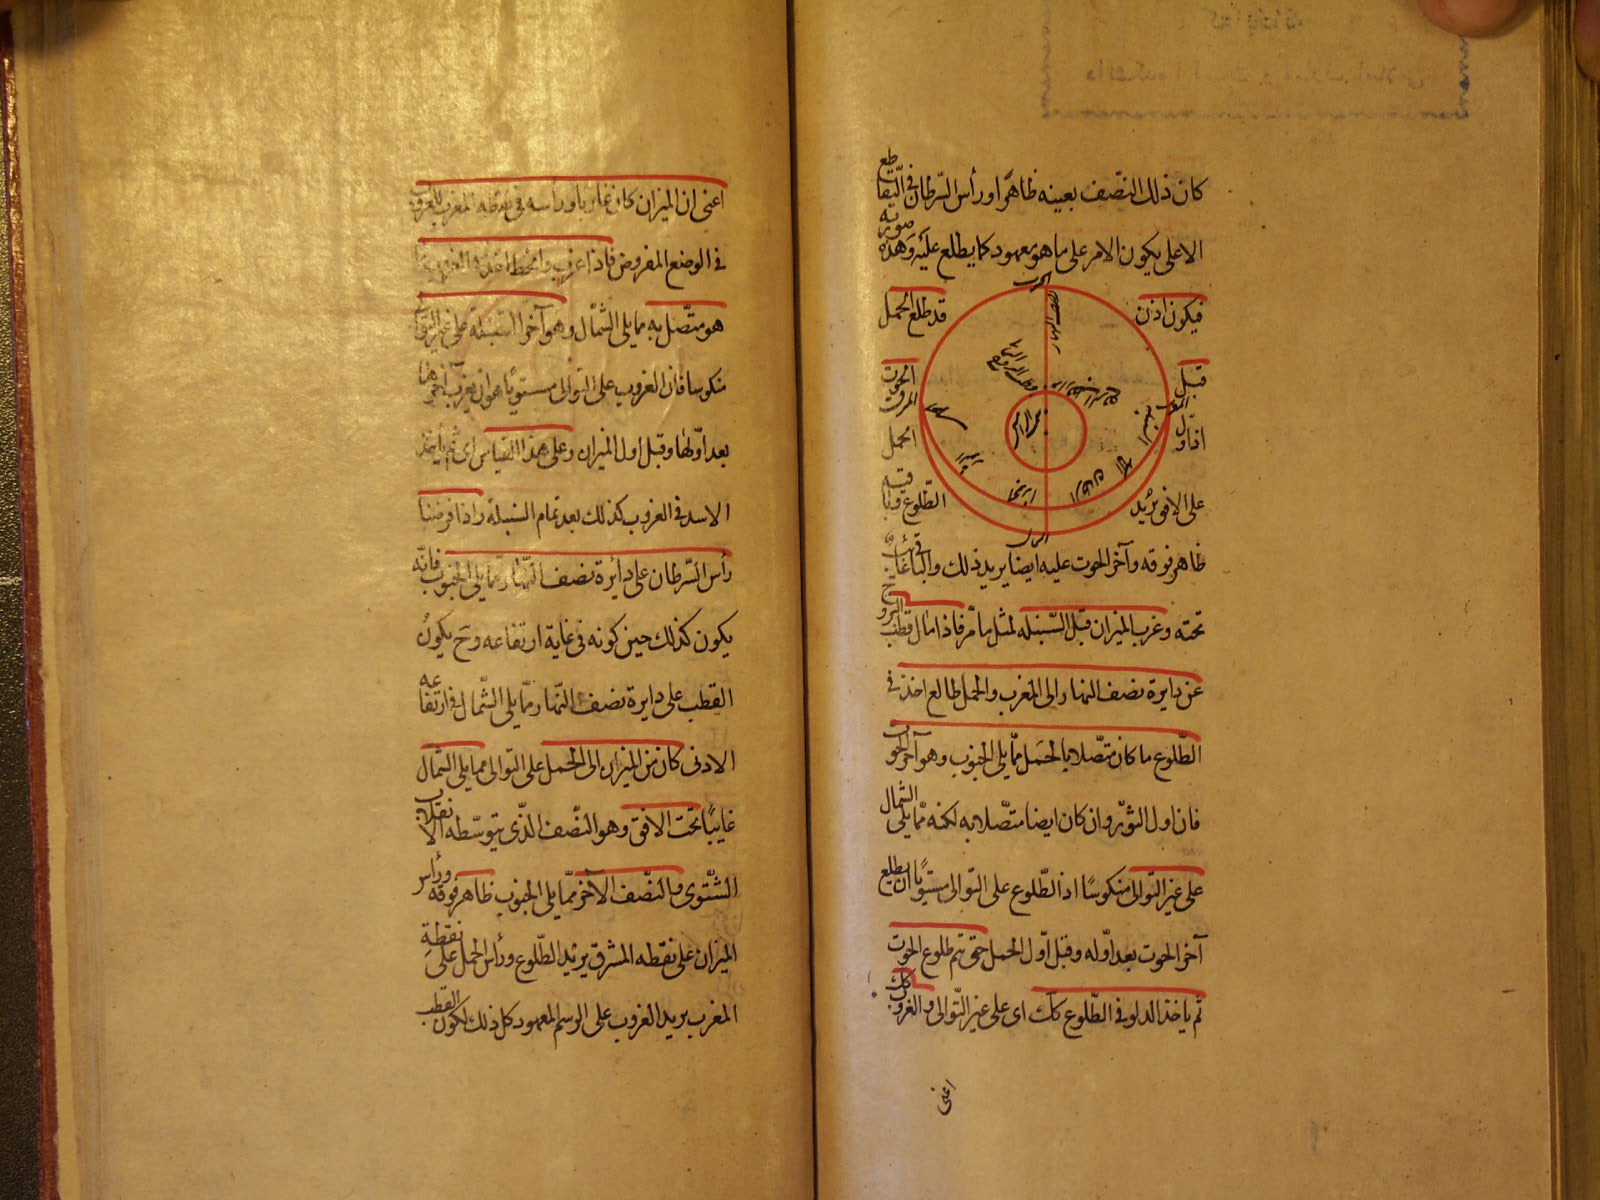 كان ذلك النصّف بعينه ظاهرًا ورأس السّرطان في التّقاطع
الاعلى يكون الامر على ما هو معهود كما يطلع عليه وهذه صورته
فيكون اذن قد طلع الحمل
قبل الحوت
اوّل الحمل
على الافق يريد الطّلوع
ظاهر فوقه وآخر الحوت عليه ايضا يريد ذلك
تحته وغرب الميزان قبل السّنبله لمثل ما مرّ فاذا مال قطب البروج
عن دايرة نصف النهار الى المغرب والحمل طالع اخذ في
الطّلوع ما كان متّصلا بالحمل ممّا يلي الجنوب وهو آخر الحوت
فان اول الثّور وان كان ايضا متّصلا به لكنه ممّا يلي الشمال
على غير التّوالى منكوسًا اذ الطّلوع على التّوالى مستويًا ان يطلع
آخر الحوت بعد اوّله وقبل اوّل الحمل حتى تم طلوع الحوت
ثم ياخذ الدلو في الطّلوع كك اى على غير التّوالى والغروب كك
اعنى
اعنى ان الميزان كان غاربا ورأسه في نقطه المغرب
في الوضع المفروض فاذا غرب وانحط اخذ في الغروب ما
هو متّصل به مما يلى الشّمال وهو آخر السنبلة على غير التوالى
منكوسا فان الغروب على التوالى مستويًا هو ان يغرب آخرها
بعد اوّلها وقبل اول الميزان وعلى هذا القياس اى ثم ياخذ
الاسد في الغروب كذلك بعد تمام السنبلة واذا فرضنا
رأس السّرطان على دائرة نصف النّهار ممّا يلى الجنوب فانّه
يكون كذلك حين كونه في غاية ارتفاعه وح يكون
القطب على دايرة نصف النّهار ممّا يلى الشّمال في ارتفاعه
الادنى كان من الميزان الى الحمل على التوالى مما يلى الشمال
غايبًا تحت الافق وهو النّصف الذّى يتوسّطه الانقلاب
الشّتوى والنصّف الآخر ممّا يلى الجنوب ظاهر فوقه ورأس
الميزان على نقطه المشرق يريد الطّلوع ورأس الحمل على نقطة
المغرب يريد الغروب على الرسم المعهود كل ذلك لكون القطب